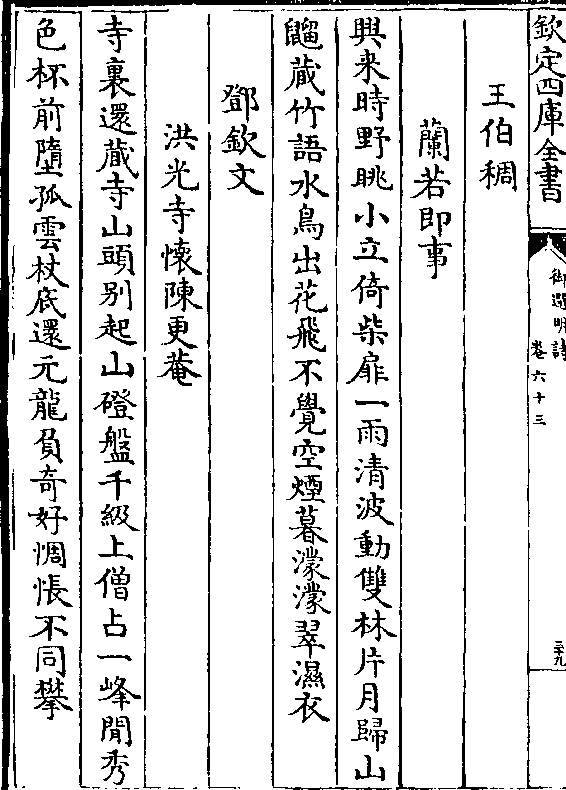 欽定四庫全書
御選明詩
卷六十三
二十九
王伯稠
蘭若即事
興来時野眺小立倚柴扉一雨清波動雙林片月歸山
鼯蔵竹語水鳥出花飛不覺空煙暮濛濛翠濕衣
鄧欽文
洪光寺懐陳更菴
寺裏還蔵寺山頭别起山磴盤千級上僧占一峰閒秀
色杯前墮孤雲杖底還元龍負奇好惆悵不同攀